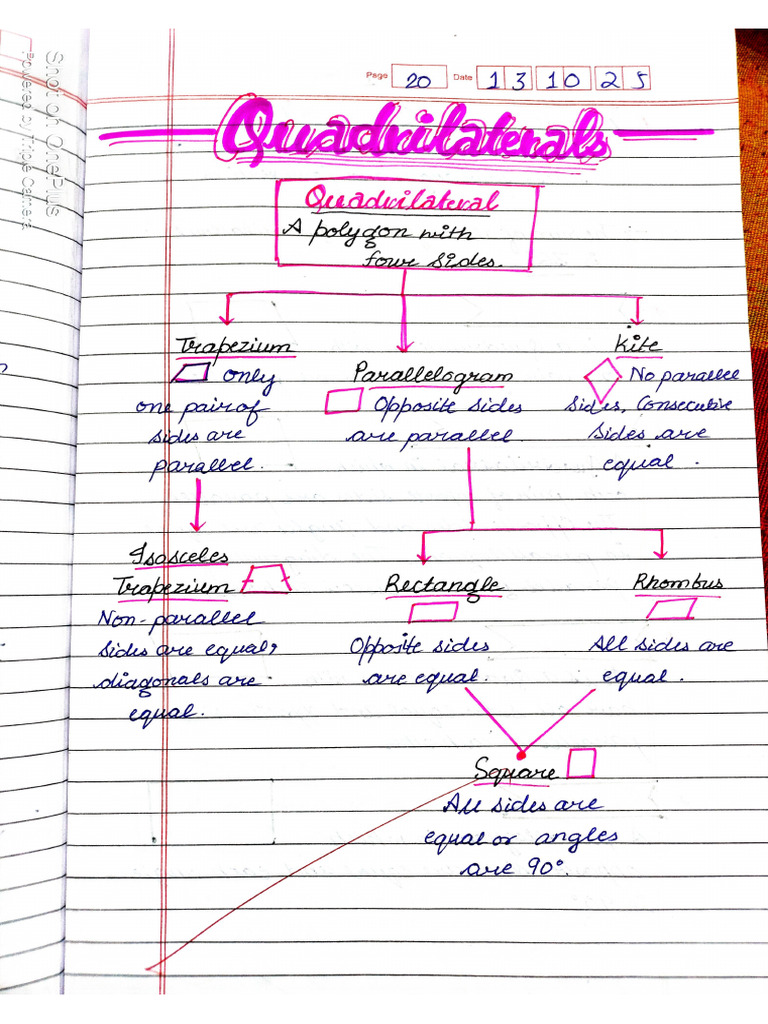 Shot on OnePlus
Powered by Triple Camera
Page 20 Date 13 10 25
Quadrilaterals
Quadrilateral
A polygon with
four sides.
Trapezium
only
one pair of
sides are
parallel.
Parallelogram
Opposite sides
are parallel.
Kite
No parallel
sides, Consecutive
sides are
equal.
Isosceles
Trapezium
Non-parallel
sides are equal,
diagonals are
equal.
Rectangle
Opposite sides
are equal.
Rhombus
All sides are
equal.
Square
All sides are
equal or angles
are 90°.